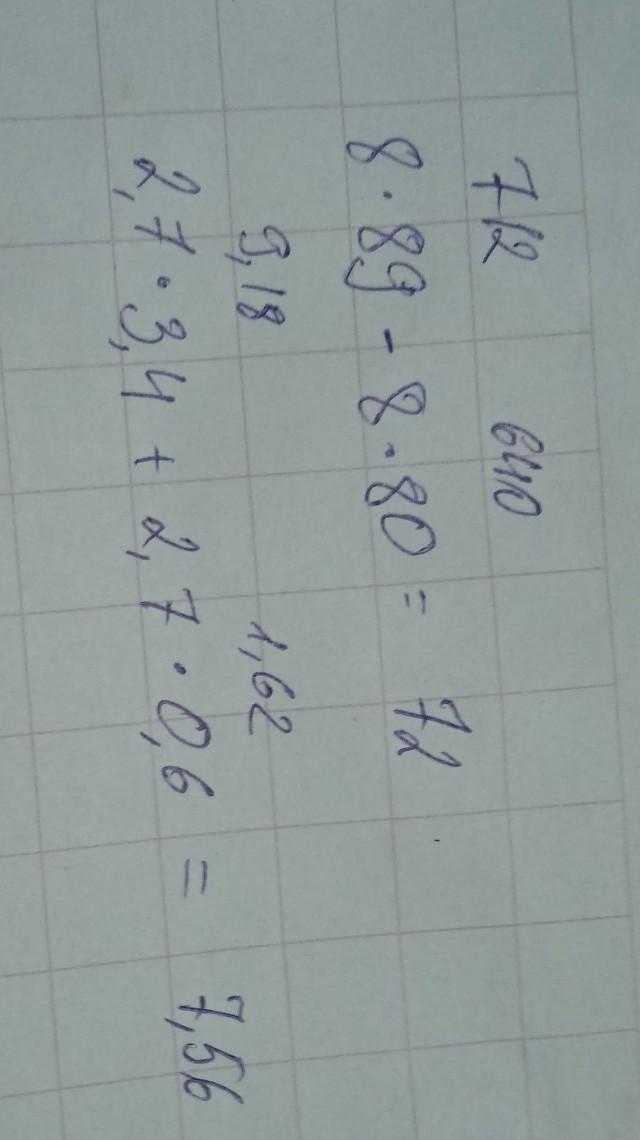 712 640
8 · 89 - 8 · 80 = 72
9,18 1,62
2,7 · 3,4 + 2,7 · 0,6 = 7,56